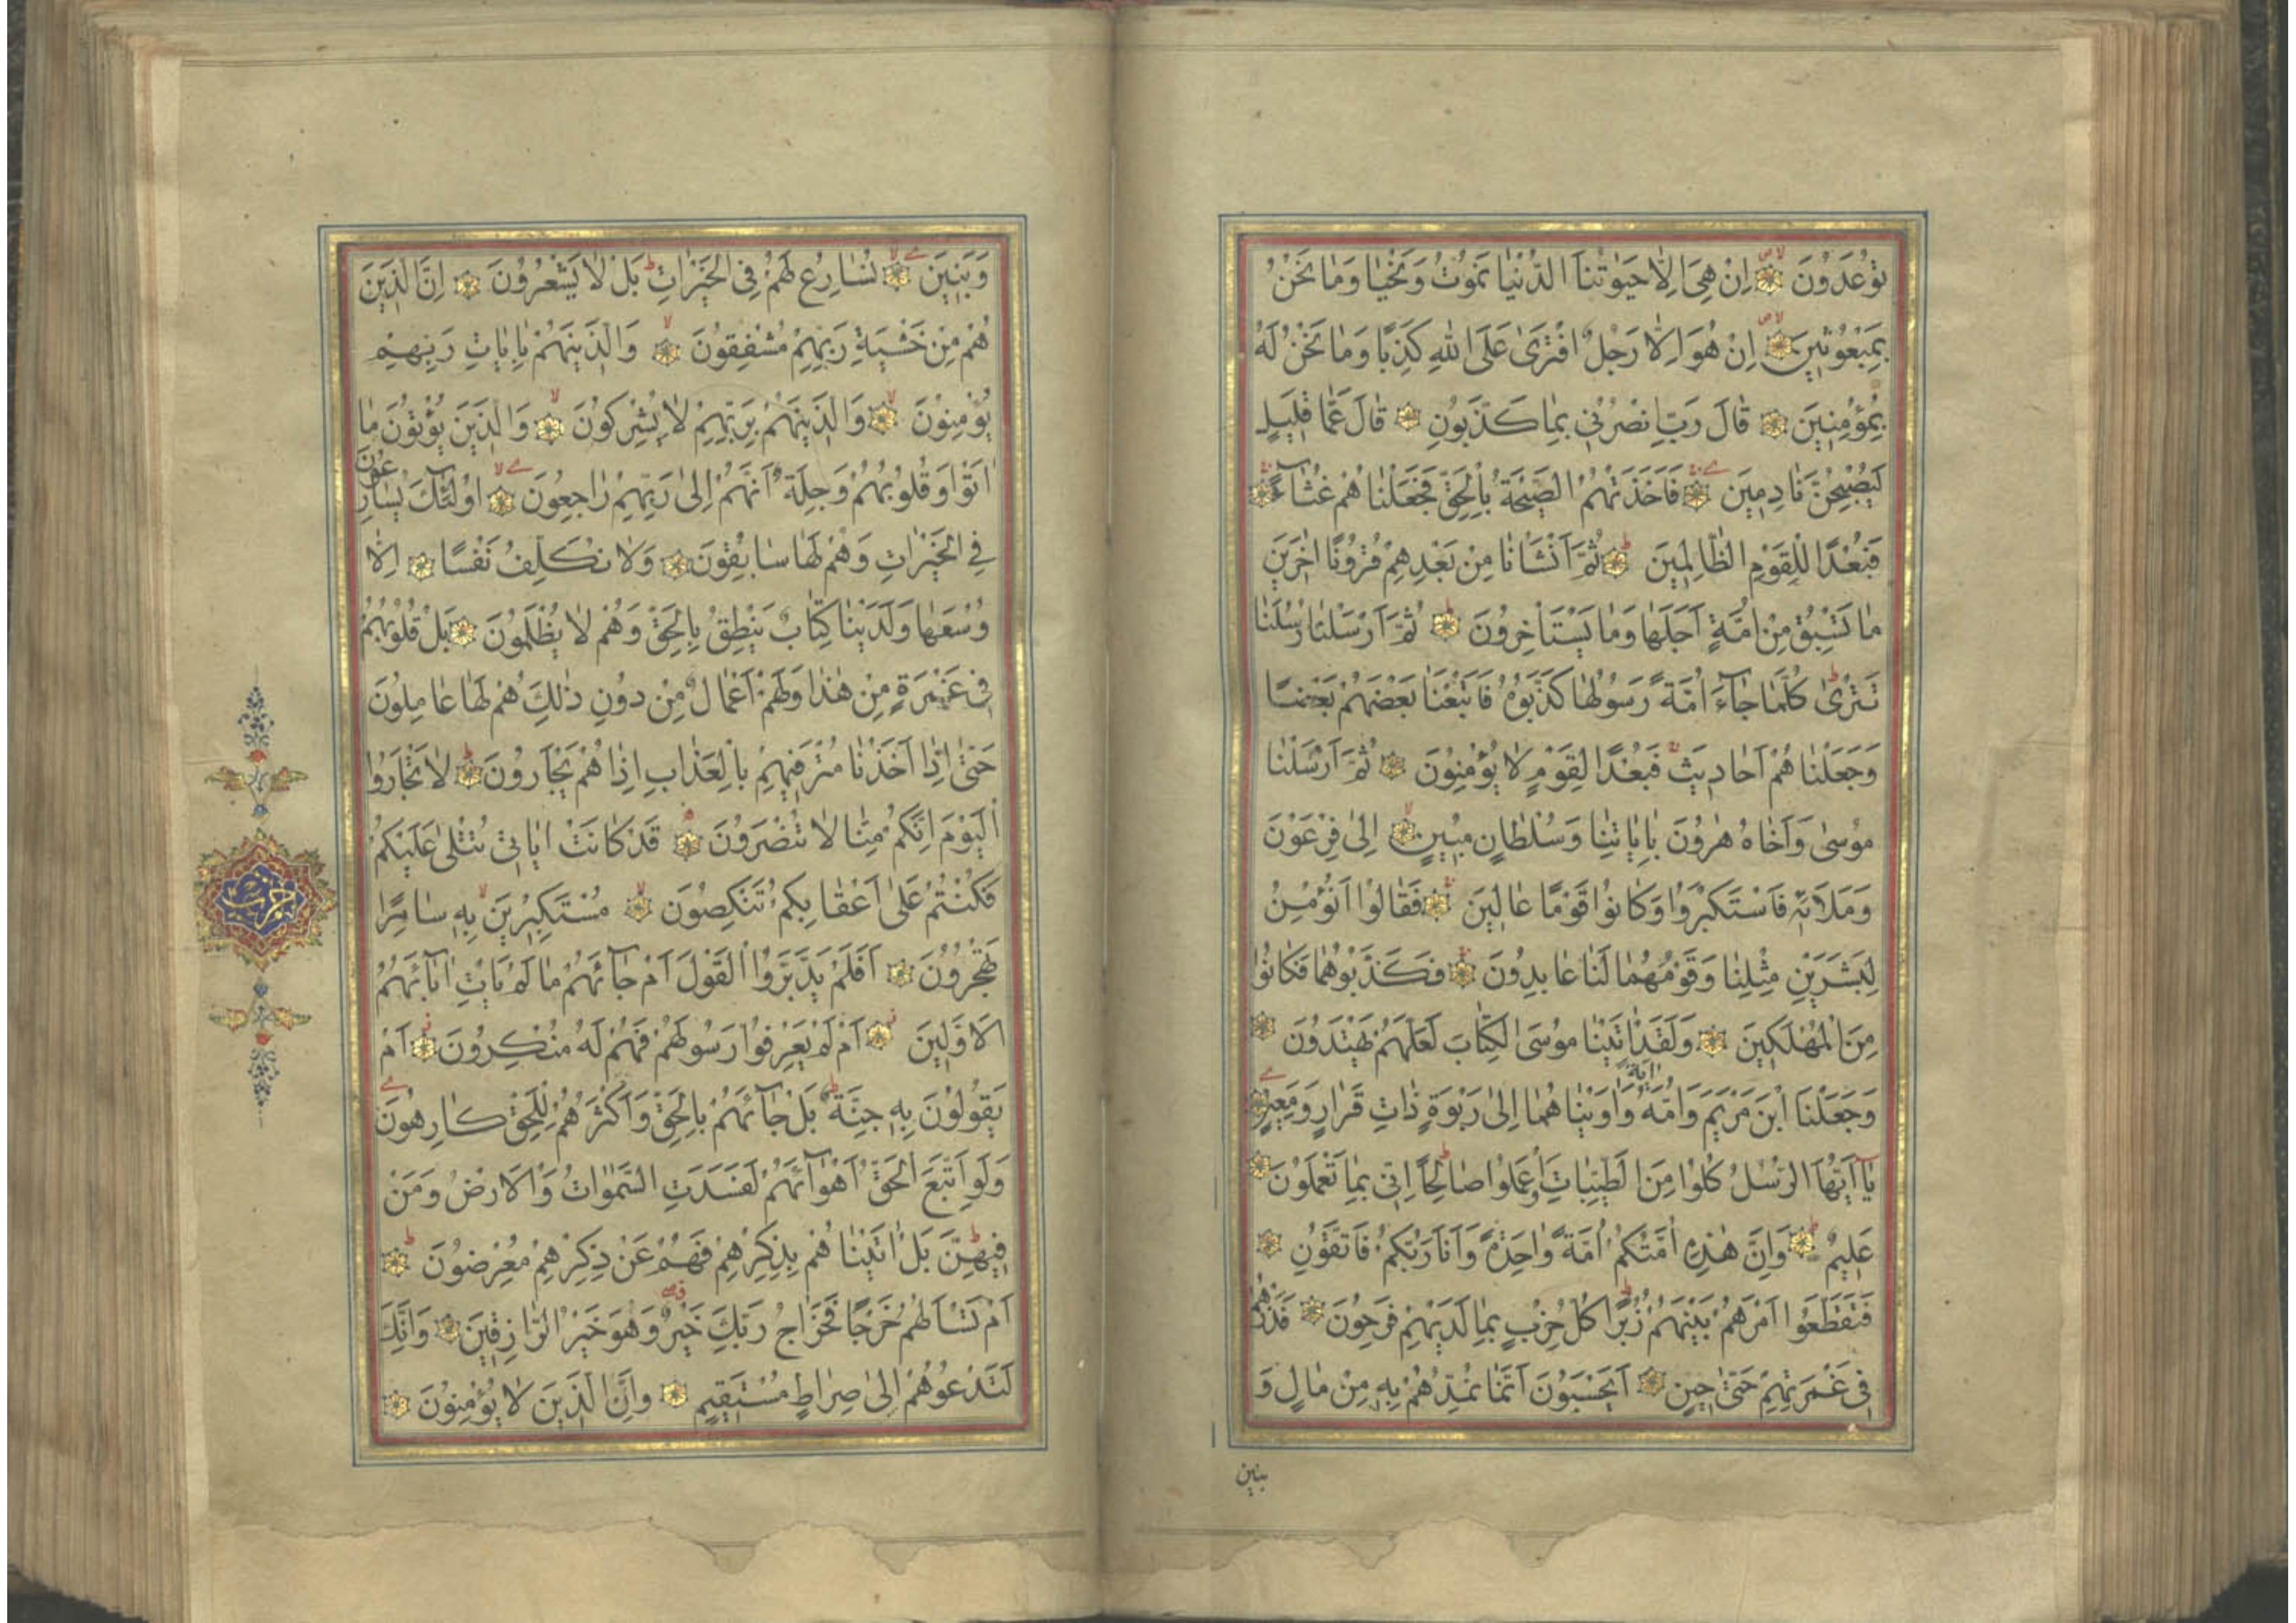 تُوعَدُونَ اِنْ هِيَ اِلَّا حَيٰوتُنَا الدُّنْيَا نَمُوتُ وَنَحْيَا وَمَا نَحْنُ
بِمَبْعُوثِينَ اِنْ هُوَ اِلَّا رَجُلٌ افْتَرَى عَلَى اللهِ كَذِبًا وَمَا نَحْنُ لَهُ
بِمُؤْمِنِينَ قَالَ رَبِّ انْصُرْنِي بِمَا كَذَّبُونِ قَالَ عَمَّا قَلِيلٍ
لَيُصْبِحُنَّ نَادِمِينَ فَاَخَذَتْهُمُ الصَّيْحَةُ بِالْحَقِّ فَجَعَلْنَاهُمْ غُثَآءً
فَبُعْدًا لِلْقَوْمِ الظَّالِمِينَ ثُمَّ اَنْشَانَا مِنْ بَعْدِهِمْ قُرُونًا اٰخَرِينَ
مَا تَسْبِقُ مِنْ اُمَّةٍ اَجَلَهَا وَمَا يَسْتَاْخِرُونَ ثُمَّ اَرْسَلْنَا رُسُلَنَا
تَتْرٰى كُلَّمَا جَآءَ اُمَّةً رَسُولُهَا كَذَّبُوهُ فَاَتْبَعْنَا بَعْضَهُمْ بَعْضًا
وَجَعَلْنَاهُمْ اَحَادِيثَ فَبُعْدًا لِقَوْمٍ لَا يُؤْمِنُونَ ثُمَّ اَرْسَلْنَا
مُوسٰى وَاَخَاهُ هٰرُونَ بِاٰيَاتِنَا وَسُلْطَانٍ مُبِينٍ اِلٰى فِرْعَوْنَ
وَمَلَائِهِ فَاسْتَكْبَرُوا وَكَانُوا قَوْمًا عَالِينَ فَقَالُوا اَنُؤْمِنُ
لِبَشَرَيْنِ مِثْلِنَا وَقَوْمُهُمَا لَنَا عَابِدُونَ فَكَذَّبُوهُمَا فَكَانُوا
مِنَ الْمُهْلَكِينَ وَلَقَدْ اٰتَيْنَا مُوسَى الْكِتَابَ لَعَلَّهُمْ يَهْتَدُونَ
وَجَعَلْنَا ابْنَ مَرْيَمَ وَاُمَّهُ اٰيَةً وَاٰوَيْنَاهُمَا اِلٰى رَبْوَةٍ ذَاتِ قَرَارٍ وَمَعِينٍ
يَآ اَيُّهَا الرُّسُلُ كُلُوا مِنَ الطَّيِّبَاتِ وَاعْمَلُوا صَالِحًا اِنِّي بِمَا تَعْمَلُونَ
عَلِيمٌ وَاِنَّ هٰذِهِ اُمَّتُكُمْ اُمَّةً وَاحِدَةً وَاَنَا رَبُّكُمْ فَاتَّقُونِ
فَتَقَطَّعُوا اَمْرَهُمْ بَيْنَهُمْ زُبُرًا كُلُّ حِزْبٍ بِمَا لَدَيْهِمْ فَرِحُونَ فَذَرْهُمْ
فِي غَمْرَتِهِمْ حَتّٰى حِينٍ اَيَحْسَبُونَ اَنَّمَا نُمِدُّهُمْ بِهِ مِنْ مَالٍ وَ
بنين
وَبَنِينَ نُسَارِعُ لَهُمْ فِي الْخَيْرَاتِ بَلْ لَا يَشْعُرُونَ اِنَّ الَّذِينَ
هُمْ مِنْ خَشْيَةِ رَبِّهِمْ مُشْفِقُونَ وَالَّذِينَ هُمْ بِاٰيَاتِ رَبِّهِمْ
يُؤْمِنُونَ وَالَّذِينَ هُمْ بِرَبِّهِمْ لَا يُشْرِكُونَ وَالَّذِينَ يُؤْتُونَ مَا
اٰتَوْا وَقُلُوبُهُمْ وَجِلَةٌ اَنَّهُمْ اِلٰى رَبِّهِمْ رَاجِعُونَ اُولٰٓئِكَ يُسَارِعُونَ
فِي الْخَيْرَاتِ وَهُمْ لَهَا سَابِقُونَ وَلَا نُكَلِّفُ نَفْسًا اِلَّا
وُسْعَهَا وَلَدَيْنَا كِتَابٌ يَنْطِقُ بِالْحَقِّ وَهُمْ لَا يُظْلَمُونَ بَلْ قُلُوبُهُمْ
فِي غَمْرَةٍ مِنْ هٰذَا وَلَهُمْ اَعْمَالٌ مِنْ دُونِ ذٰلِكَ هُمْ لَهَا عَامِلُونَ
حَتّٰى اِذَا اَخَذْنَا مُتْرَفِيهِمْ بِالْعَذَابِ اِذَا هُمْ يَجْاَرُونَ لَا تَجْاَرُوا
الْيَوْمَ اِنَّكُمْ مِنَّا لَا تُنْصَرُونَ قَدْ كَانَتْ اٰيَاتِي تُتْلٰى عَلَيْكُمْ
فَكُنْتُمْ عَلٰى اَعْقَابِكُمْ تَنْكِصُونَ مُسْتَكْبِرِينَ بِهِ سَامِرًا
تَهْجُرُونَ اَفَلَمْ يَدَّبَّرُوا الْقَوْلَ اَمْ جَآئَهُمْ مَا لَمْ يَاْتِ اٰبَآئَهُمُ
الْاَوَّلِينَ اَمْ لَمْ يَعْرِفُوا رَسُولَهُمْ فَهُمْ لَهُ مُنْكِرُونَ اَمْ
يَقُولُونَ بِهِ جِنَّةٌ بَلْ جَآئَهُمْ بِالْحَقِّ وَاَكْثَرُهُمْ لِلْحَقِّ كَارِهُونَ
وَلَوِ اتَّبَعَ الْحَقُّ اَهْوَآئَهُمْ لَفَسَدَتِ السَّمٰوَاتُ وَالْاَرْضُ وَمَنْ
فِيهِنَّ بَلْ اَتَيْنَاهُمْ بِذِكْرِهِمْ فَهُمْ عَنْ ذِكْرِهِمْ مُعْرِضُونَ
اَمْ تَسْاَلُهُمْ خَرْجًا فَخَرَاجُ رَبِّكَ خَيْرٌ وَهُوَ خَيْرُ الرَّازِقِينَ وَاِنَّكَ
لَتَدْعُوهُمْ اِلٰى صِرَاطٍ مُسْتَقِيمٍ وَاِنَّ الَّذِينَ لَا يُؤْمِنُونَ
حزب